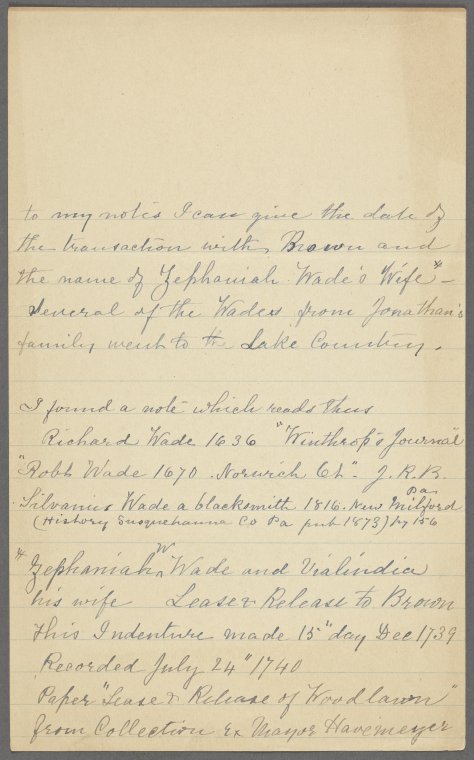 to my notes I can give the date of
the transaction with Brown and
the name of Zephaniah Wade's Wife * –
Several of the Wades from Jonathan's
family went to the Lake Country.
I found a note which reads thus
Richard Wade 1636 "Winthrop's Journal"
"Robt Wade 1670 . Norwich Ct". J. R. B.
Silvanus Wade a blacksmith 1816. New Milford Pa
(History Susquehanna Co Pa pub 1873) pg 156
* Zephaniah W Wade and Vialindia
his wife Lease & Release to Brown
This Indenture made 15" day Dec 1739
Recorded July 24" 1740
Paper "Lease & Release of Woodlawn"
from Collection Ex Mayor Havemeyer